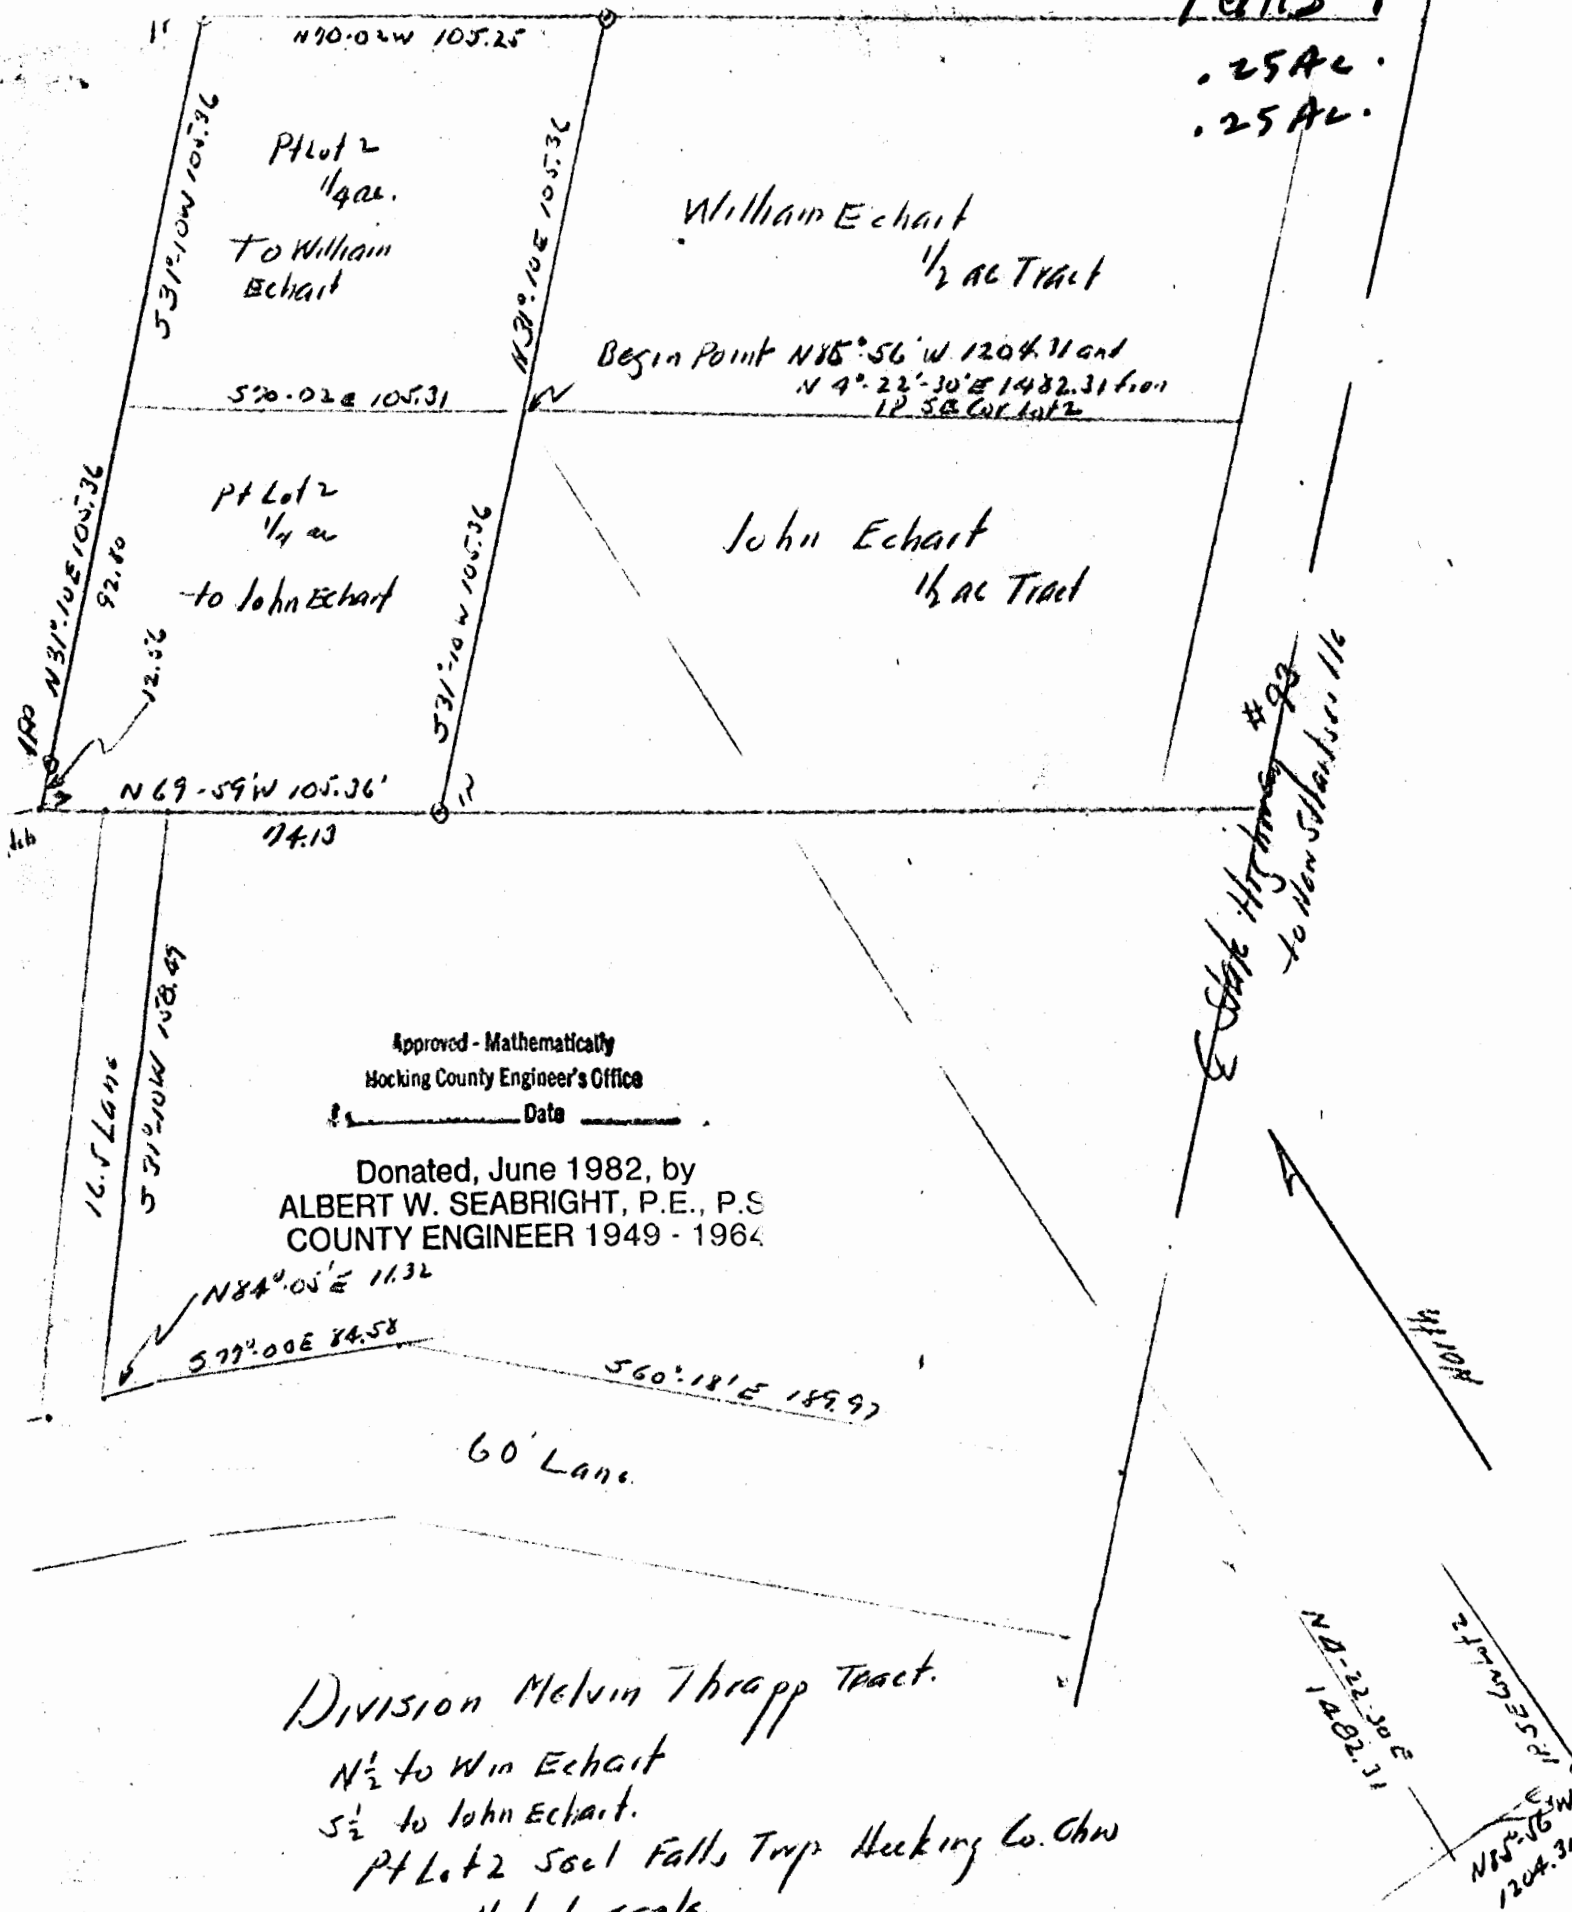 .25 Ac.
.25 Ac.
N70-02W 105.25
S31°-10W 105.36
Pt Lot 2
1/4 ac.
To William
Echart
N31°-10E 105.36
William Echart
1/2 ac Tract
Begin Point N85°-56'W 1204.31 and
N 4°-22'-30"E 1482.31 from
IP SE Cor Lot 2
S70-02E 105.31
N31°-10E 105.36
92.80
12.56
Pt Lot 2
1/4 ac
to John Echart
S31°-10W 105.36
John Echart
1/2 ac Tract
N69-59'W 105.36'
74.13
IP
State Highway #93
16.5 Lane
S31°-10W 158.49
Approved - Mathematically
Hocking County Engineer's Office
Date
Donated, June 1982, by
ALBERT W. SEABRIGHT, P.E., P.S
COUNTY ENGINEER 1949 - 1964
N84°-05'E 11.32
S77°-00E 84.58
S60°-18'E 189.97
60' Lane
North
N4-22-30E
1482.31
N85°-56'W
1204.31
Division Melvin Thrapp Tract.
N 1/2 to Wm Echart
S 1/2 to John Echart.
Pt Lot 2 Falls Twp Hocking Co. Ohio